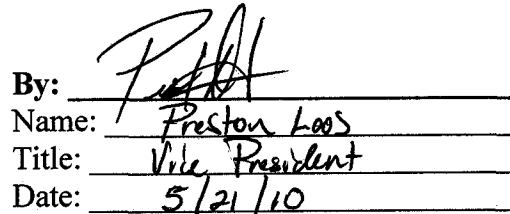 By:
Name: Preston Loos
Title: Vice President
Date: 5/21/10